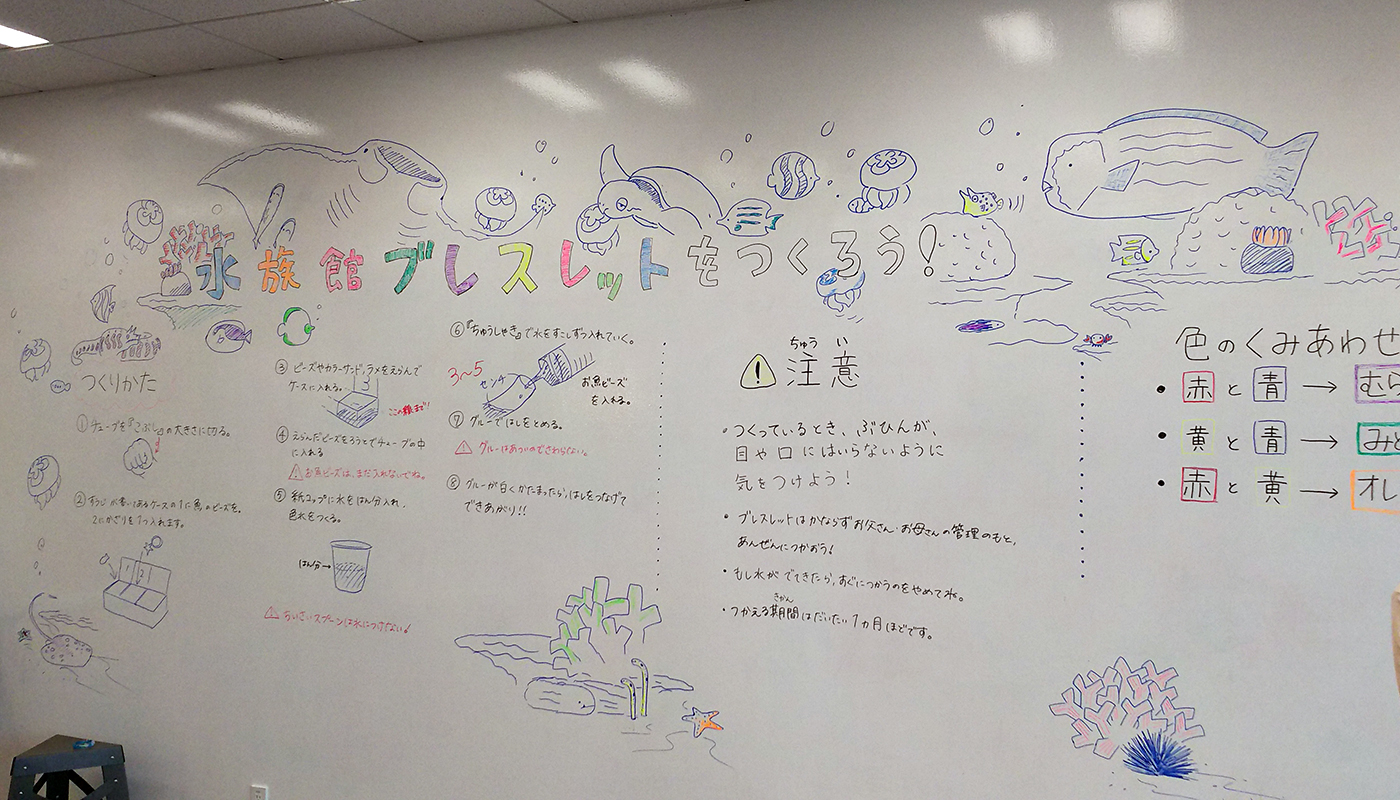 水族館ブレスレットをつくろう!
つくりかた
①チューブを『こぶし』の大きさに切る。
のケースの1に魚のビーズを、
2にかざりを1つ入れます。
1
2
③ビーズやカラーサンド、ラメをえらんで
ケースに入れる。
3
ここの線まで!
④えらんだビーズをろうとでチューブの中
に入れる
お魚ビーズは、まだ入れないでね。
⑤紙コップに水をはん分入れ、
色水をつくる。
はん分→
ちいさいスプーンは水につけない!
⑥『ちゅうしゃき』で水をすこしずつ入れていく。
3~5
センチ
お魚ビーズ
を入れる。
⑦グルーではしをとめる。
グルーはあついのでさわらない。
⑧グルーが白くかたまったら、はしをつなげて
できあがり!!
ちゅう い
! 注意
・つくっているとき、ぶひんが、
目や口にはいらないように
気をつけよう!
・ブレスレットはかならずお父さん・お母さんの管理のもと、
あんぜんにつかおう!
・もし水がでてきたら、すぐにつかうのをやめてね。
きかん
・つかえる期間はだいたい1ヵ月ほどです。
色のくみあわせ
・赤と青→むら
・黄と青→みど
・赤と黄→オレ